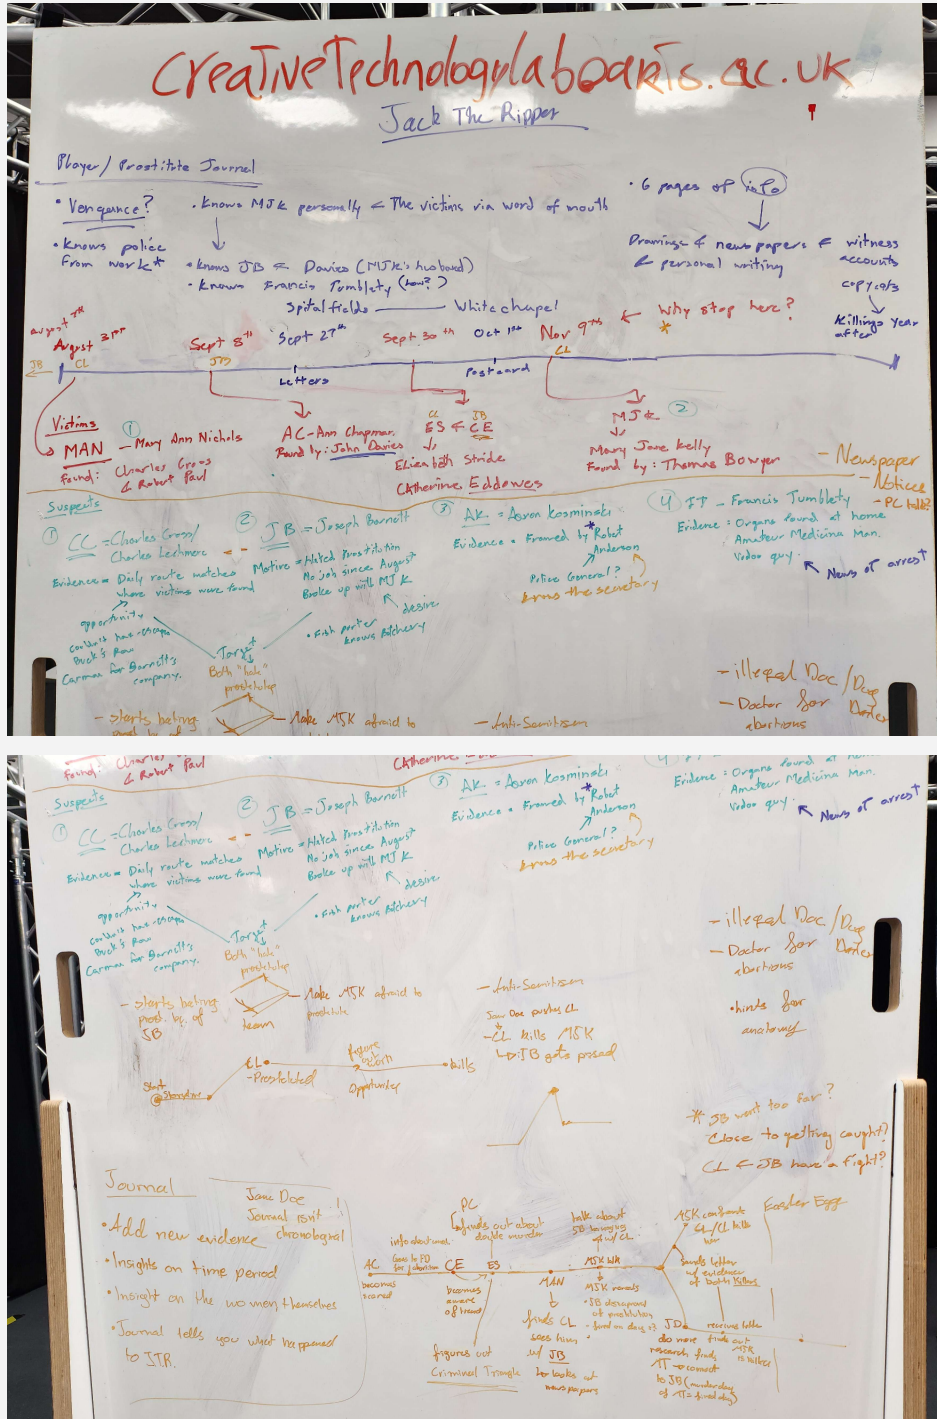 CreativeTechnologylab@arts.ac.uk
Jack The Ripper
Player/Prostitute Journal
• Vengeance?
• Knows MJK personally & The victims via word of mouth
• 6 pages of info
• Knows police
from work*
• Knows JB & Davies (MJK's husband)
• Knows Francis Tumblety (how?)
Drawings & newspapers & witness
& personal writing
accounts
copycats
Killings year
after
Spitalfields
Whitechapel
August 7th
August 31st
Sept 8th
Sept 27th
Sept 30th
Oct 1st
Nov 9th
Why stop here?
*
JB
CL
JB
CL
Letters
Postcard
Victims
MAN
1
- Mary Ann Nichols
Found: Charles Cross
& Robert Paul
AC-Ann Chapman
Found by: John Davies
CL
JB
ES & CE
Elizabeth Stride
Catherine Eddowes
MJK
2
Mary Jane Kelly
Found by: Thomas Bowyer
- Newspaper
- Notices
- PC
Suspects
1
CC = Charles Cross/
Charles Lechmere
Evidence = Daily route matches
where victims were found
opportunity
Buck's Row
Carman for Barnett's
company.
2
JB = Joseph Barnett
Motive = Hated Prostitution
No job since August
Broke up with MJK
desire
• Fish porter
knows Butchery
Target
Both "hate"
prostitutes
3
AK = Aaron Kosminski
Evidence = Framed by *Robert
Anderson
Police General?
knows the secretary
4
FT - Francis Tumblety
Evidence: Organs found at home
Amateur Medicina Man.
Vodoo guy.
News of arrest
- illegal Doc/Drug
- Doctor for
abortions
- starts
- Make MJK afraid to
- Anti-Semitism
Found: Charles
& Robert Paul
Catherine
Suspects
1
CC = Charles Cross/
Charles Lechmere
Evidence = Daily route matches
where victims were found
opportunity
Buck's Row
Carman for Barnett's
company.
2
JB = Joseph Barnett
Motive = Hated Prostitution
No job since August
Broke up with MJK
desire
• Fish porter
knows Butchery
Target
Both "hate"
prostitutes
3
AK = Aaron Kosminski
Evidence = Framed by *Robert
Anderson
Police General?
knows the secretary
Evidence: Organs found at
Amateur Medicina Man.
Vodoo guy.
News of arrest
- illegal Doc/Drug
- Doctor for
abortions
• hinds for
anatomy
- starts
prost. bc of
JB
team
- Make MJK afraid to
prostitute
- Anti-Semitism
Jane Doe pushes CL
- CL kills MJK
JB gets pissed
Start
Storyline
CL
figure
out
worth
Opportunity
kills
* JB went too far?
Close to getting caught?
CL & JB have a fight?
Journal
Jane Doe
Journal isn't
chronological
!
• Add new evidence
• Insights on time period
• Insight on the women themselves
• Journal tells you what happened
to JTR.
PC
finds out about
double murder
talk about
MJK confronts
Easter Egg
AC
CE
ES
MAN
becomes
scared
becomes
aware
figures out
Criminal Triangle
finds CL
sees him
w/ JB
looks at
newspapers
MJK reveals
Sends letter
w/ evidence
of both killers
JD
do more
research finds
receives letter
finds out
MJK
is killed